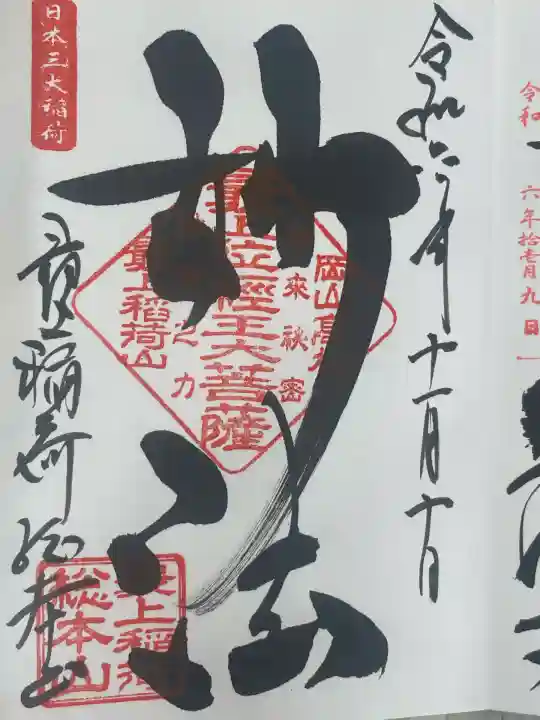 令和
六年拾壱月九日
令和六年十一月十日
日本三大稲荷
妙法
最上位經王大菩薩
岡山高
如来秘密
之力
最上稲荷山
最上稲荷総本山
最上稲荷
総本山